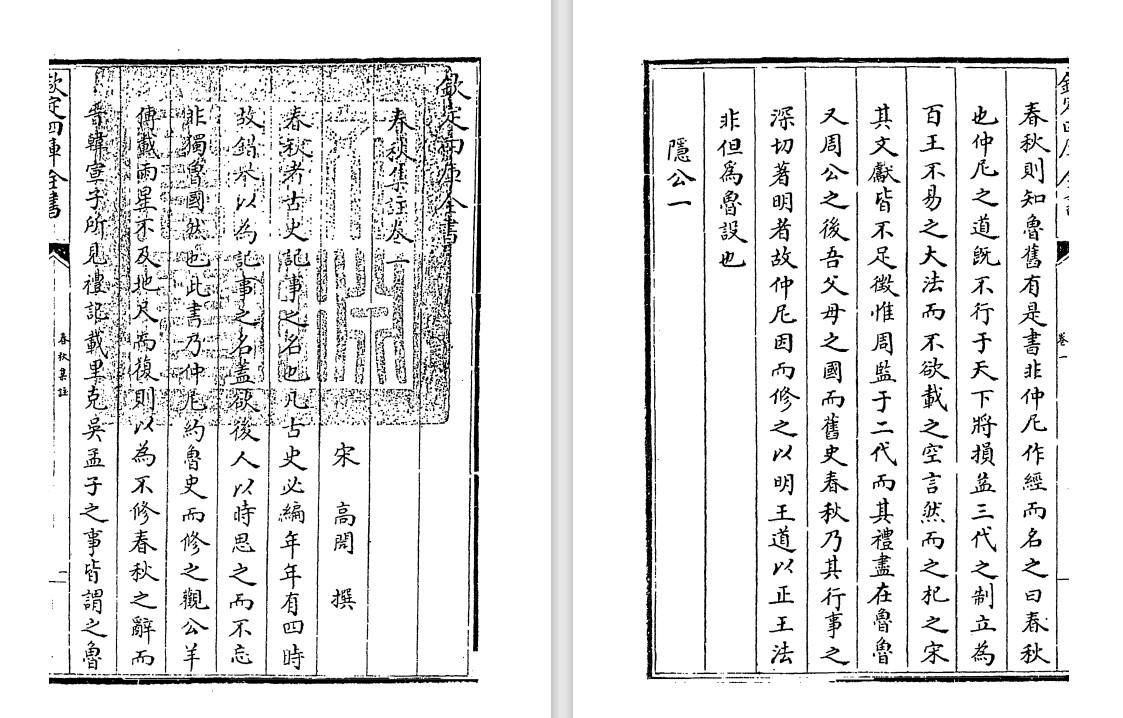 欽定四庫全書
春秋集註卷一
宋 高閌 撰
春秋者古史記事之名也凡古史必編年年有四時
故錯舉以為記事之名蓋欲後人以時思之而不忘
非獨魯國然也此書乃仲尼約魯史而修之觀公羊
傳載雨星不及地尺而復則以為不修春秋之辭而
晉韓宣子所見禮記載里克吳孟子之事皆謂之魯
欽定四庫全書
春秋集註
卷一
春秋則知魯舊有是書非仲尼作經而名之曰春秋
也仲尼之道既不行于天下將損益三代之制立為
百王不易之大法而不欲載之空言然而之杞之宋
其文獻皆不足徵惟周監于二代而其禮盡在魯魯
又周公之後吾父母之國而舊史春秋乃其行事之
深切著明者故仲尼因而修之以明王道以正王法
非但為魯設也
隱公一